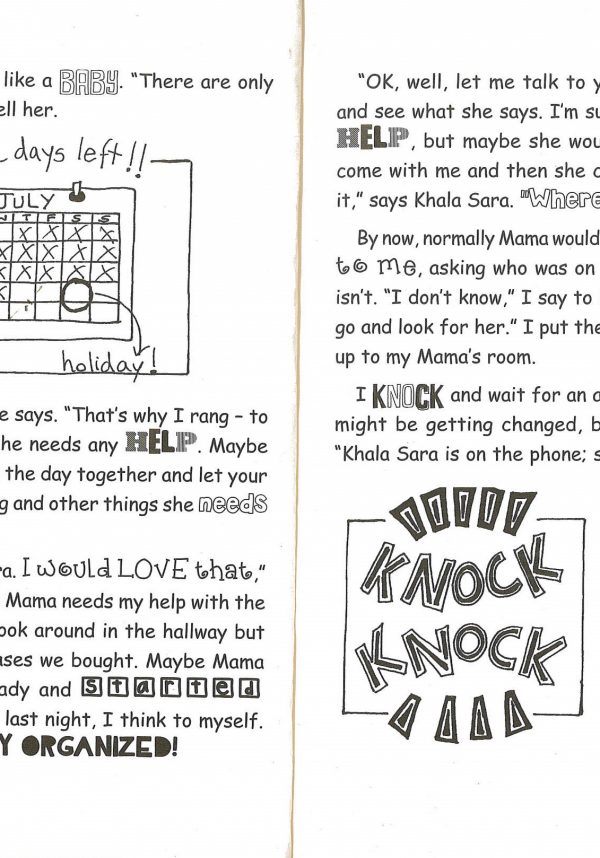 like a BABY. “There are only
ell her.
days left!!
JULY
W T F S S
X X X X
X X X X X
X X X X X
X
holiday!
e says. “That’s why I rang – to
he needs any HELP. Maybe
the day together and let your
g and other things she needs
ra. I would LOVE that,”
Mama needs my help with the
ook around in the hallway but
ases we bought. Maybe Mama
ady and started
last night, I think to myself.
Y ORGANIZED!
“OK, well, let me talk to y
and see what she says. I’m su
HELP, but maybe she wou
come with me and then she c
it,” says Khala Sara. “Where
By now, normally Mama would
to me, asking who was on
isn’t. “I don’t know,” I say to
go and look for her.” I put the
up to my Mama’s room.
I KNOCK and wait for an a
might be getting changed, b
“Khala Sara is on the phone; s
KNOCK
KNOCK